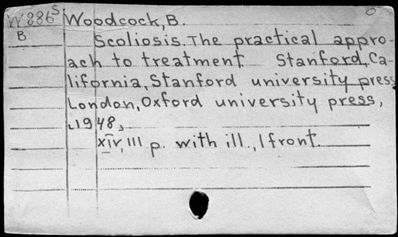 W 886 S Woodcock, B.
B Scoliosis. The practical appro-
ach to treatment Stanford, Ca-
lifornia, Stanford university press
London, Oxford university press,
1948,
XIV, 111 p. with ill., 1 front.